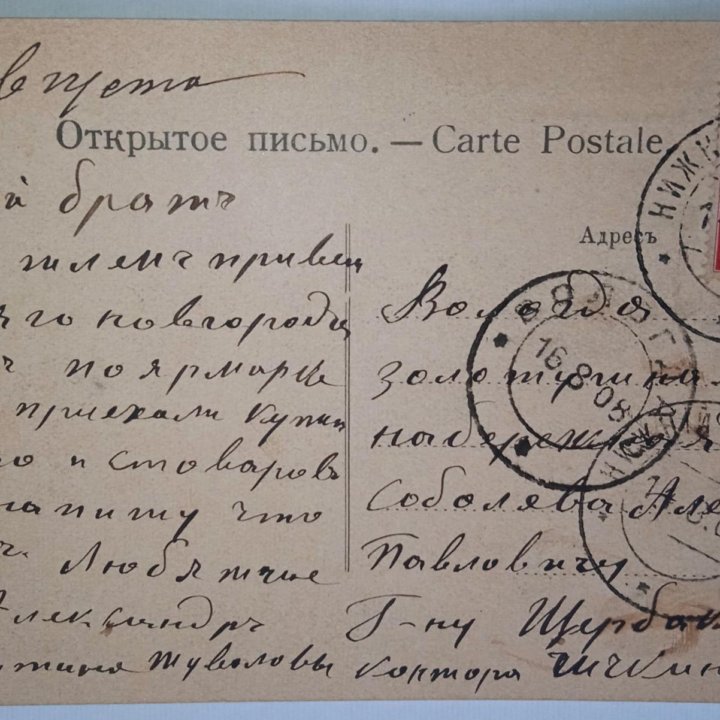 Августа
Открытое письмо. — Carte Postale.
й братъ
шлемъ привет
его новгорода
ъ по ярмарке
приехали купи
о и стоваровъ
напишу что
ъ. Любящие
Александръ
Шуваловы
Адресъ
Вологда
золотушная
набережная
Соболева Але
Павловичу
Г-ну Щербак
Контора
НИЖН
ВОЛОГДА
16.8.08
НИЖ